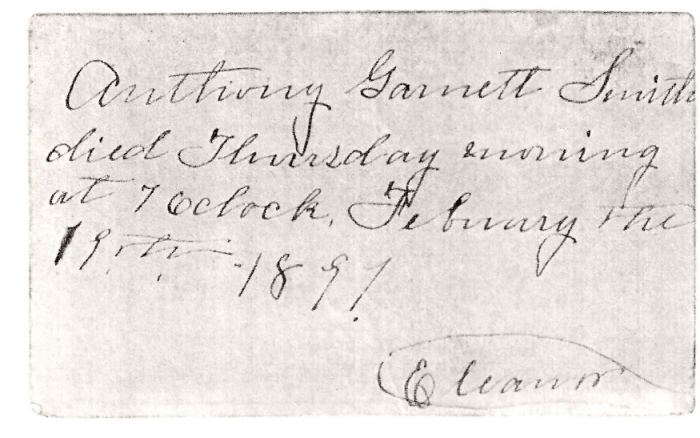 Anthony Garnett Smith
died Thursday morning
at 7 Oclock, Febuary the
19th 1891
Eleanor